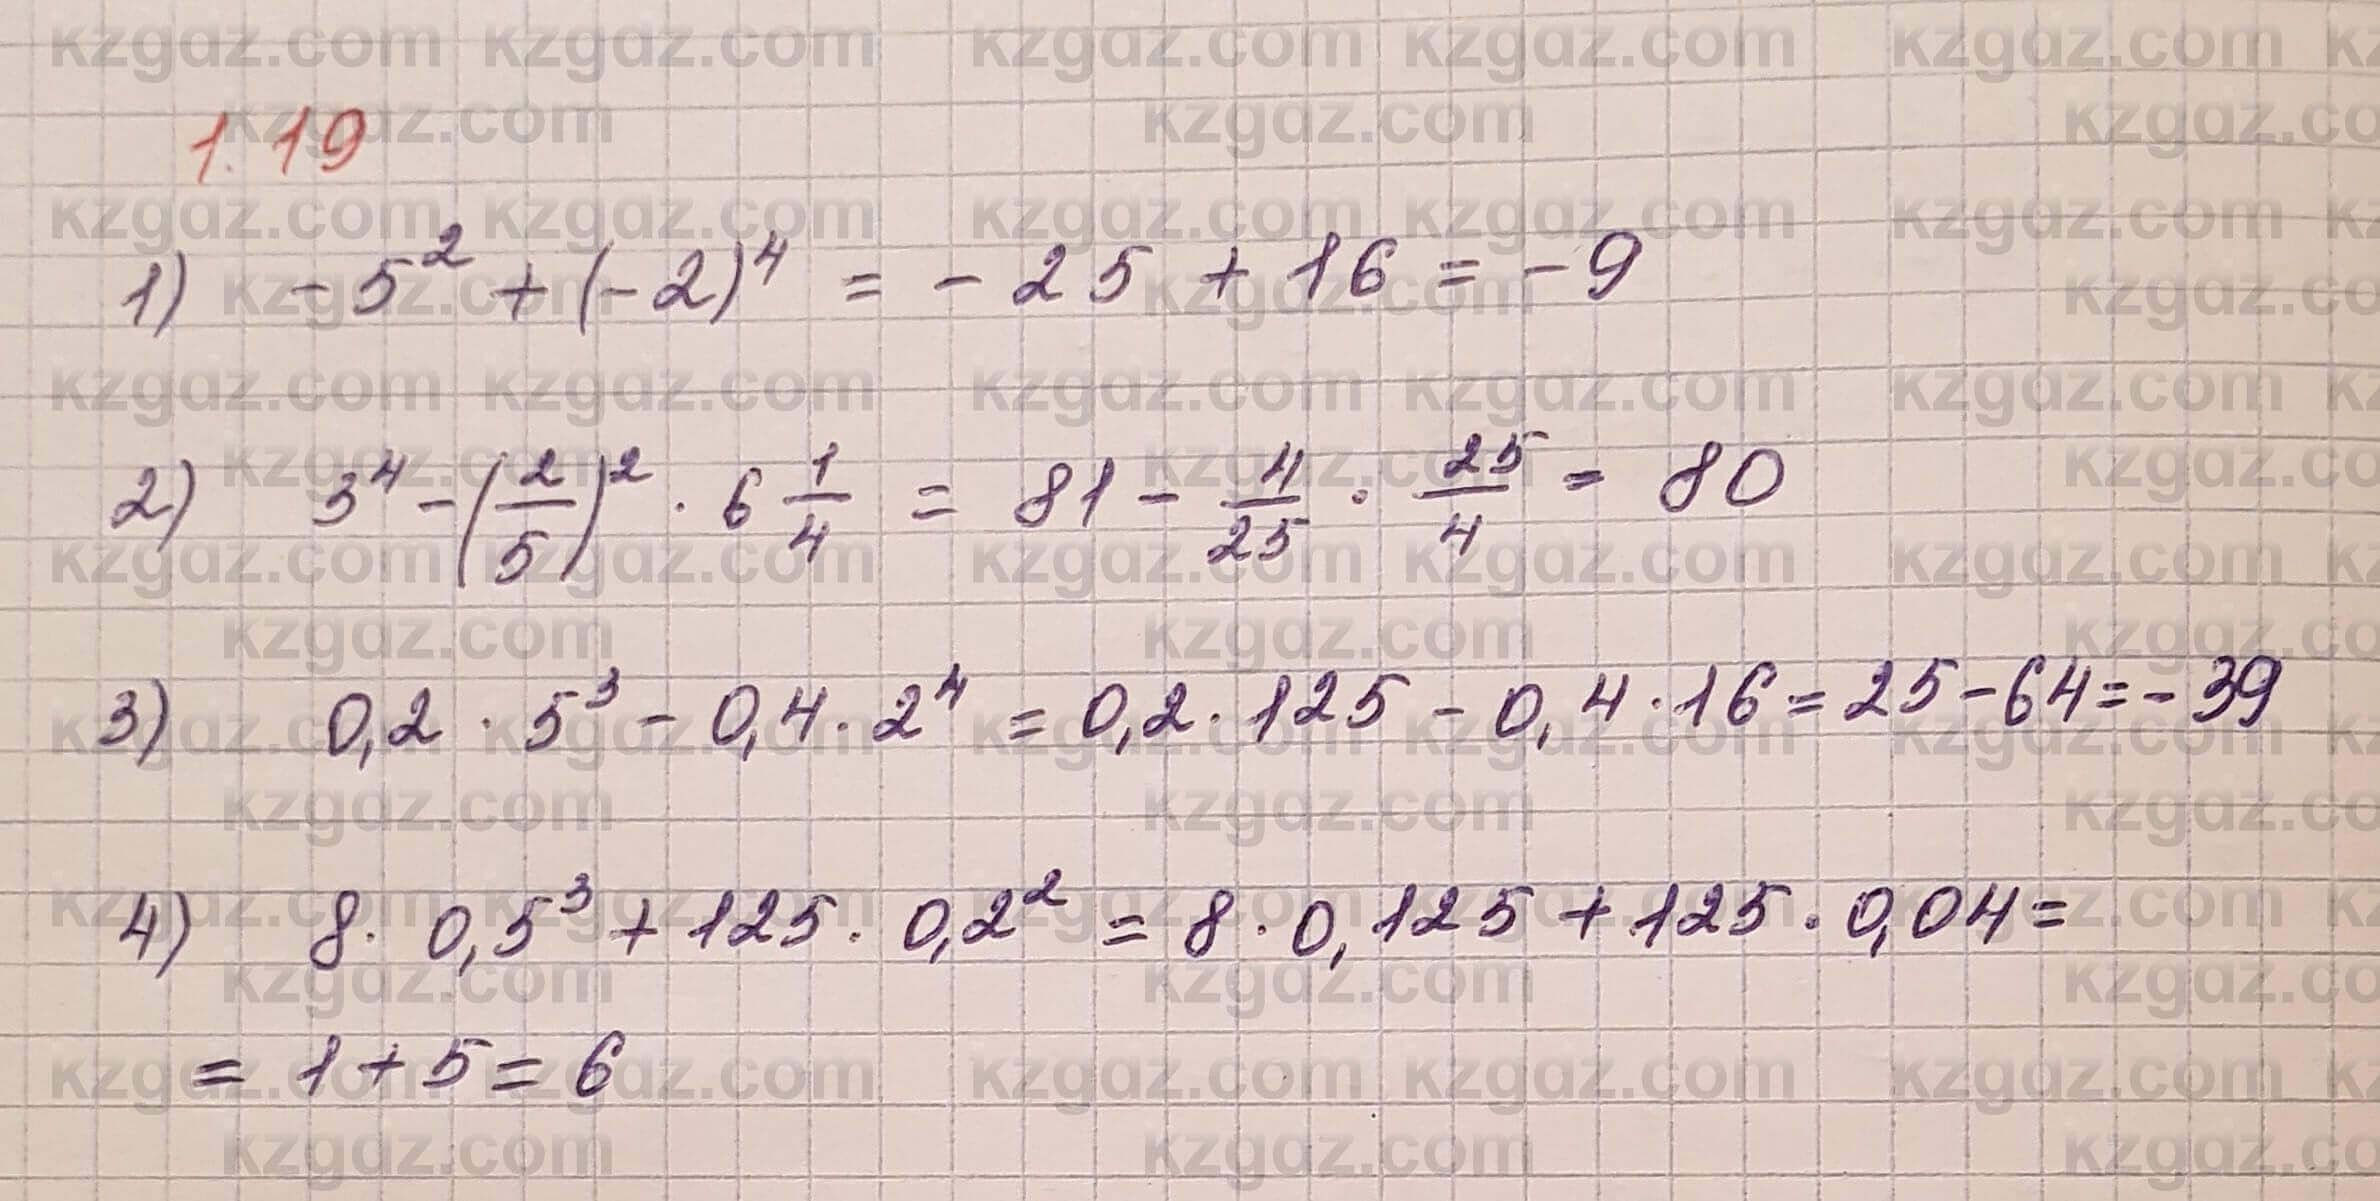 1.19
1) -5² + (-2)⁴ = - 25 + 16 = -9
2) 3⁴ - (2/5)² · 6 1/4 = 81 - 4/25 · 25/4 = 80
3) 0,2 · 5³ - 0,4 · 2⁴ = 0,2 · 125 - 0,4 · 16 = 25 - 64 = - 39
4) 8 · 0,5³ + 125 · 0,2² = 8 · 0,125 + 125 · 0,04 =
= 1 + 5 = 6
kzgaz.com